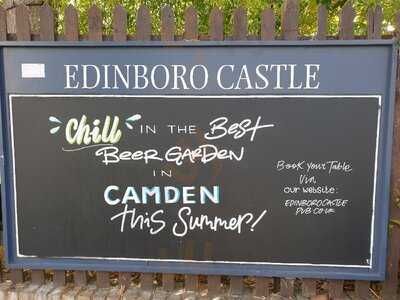 EDINBORO CASTLE
Chill IN THE Best
BEER GARDEN
IN
CAMDEN
this Summer!
BOOK YOUR TABLE
VIA
OUR WEBSITE:
EDINBOROCASTLE
PUB.CO.UK